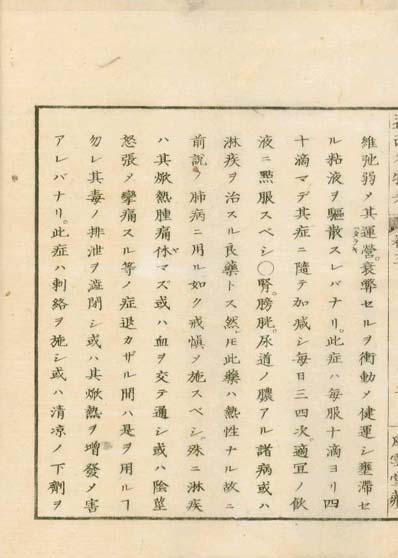 維弛弱メ其運營衰弊セルヲ衝動メ健運シ壅滞セ
ル粘液ヲ驅散スレバナリ。此症ハ毎服十滴ヨリ四
十滴マデ其症ニ隨テ加減シ毎日三四次。適宜ノ飲
液ニ點服スベシ〇腎。膀胱。尿道ノ膿アル諸病或ハ
淋疾ヲ治スル良藥トス然𪜈此藥ハ熱性ナル故ニ
前説ノ肺病ニ用ル如ク戒愼メ施スベシ。殊ニ淋疾
ハ其焮熱腫痛休マズ或ハ血ヲ交テ通シ或ハ陰莖
怒張メ攣痛スル等ノ症退カザル間ハ是ヲ用ルヿ
勿レ其毒ノ排泄ヲ澁閉シ或ハ其焮熱ヲ增發メ害
アレバナリ。此症ハ刺絡ヲ施シ或ハ清凉ノ下劑ヲ